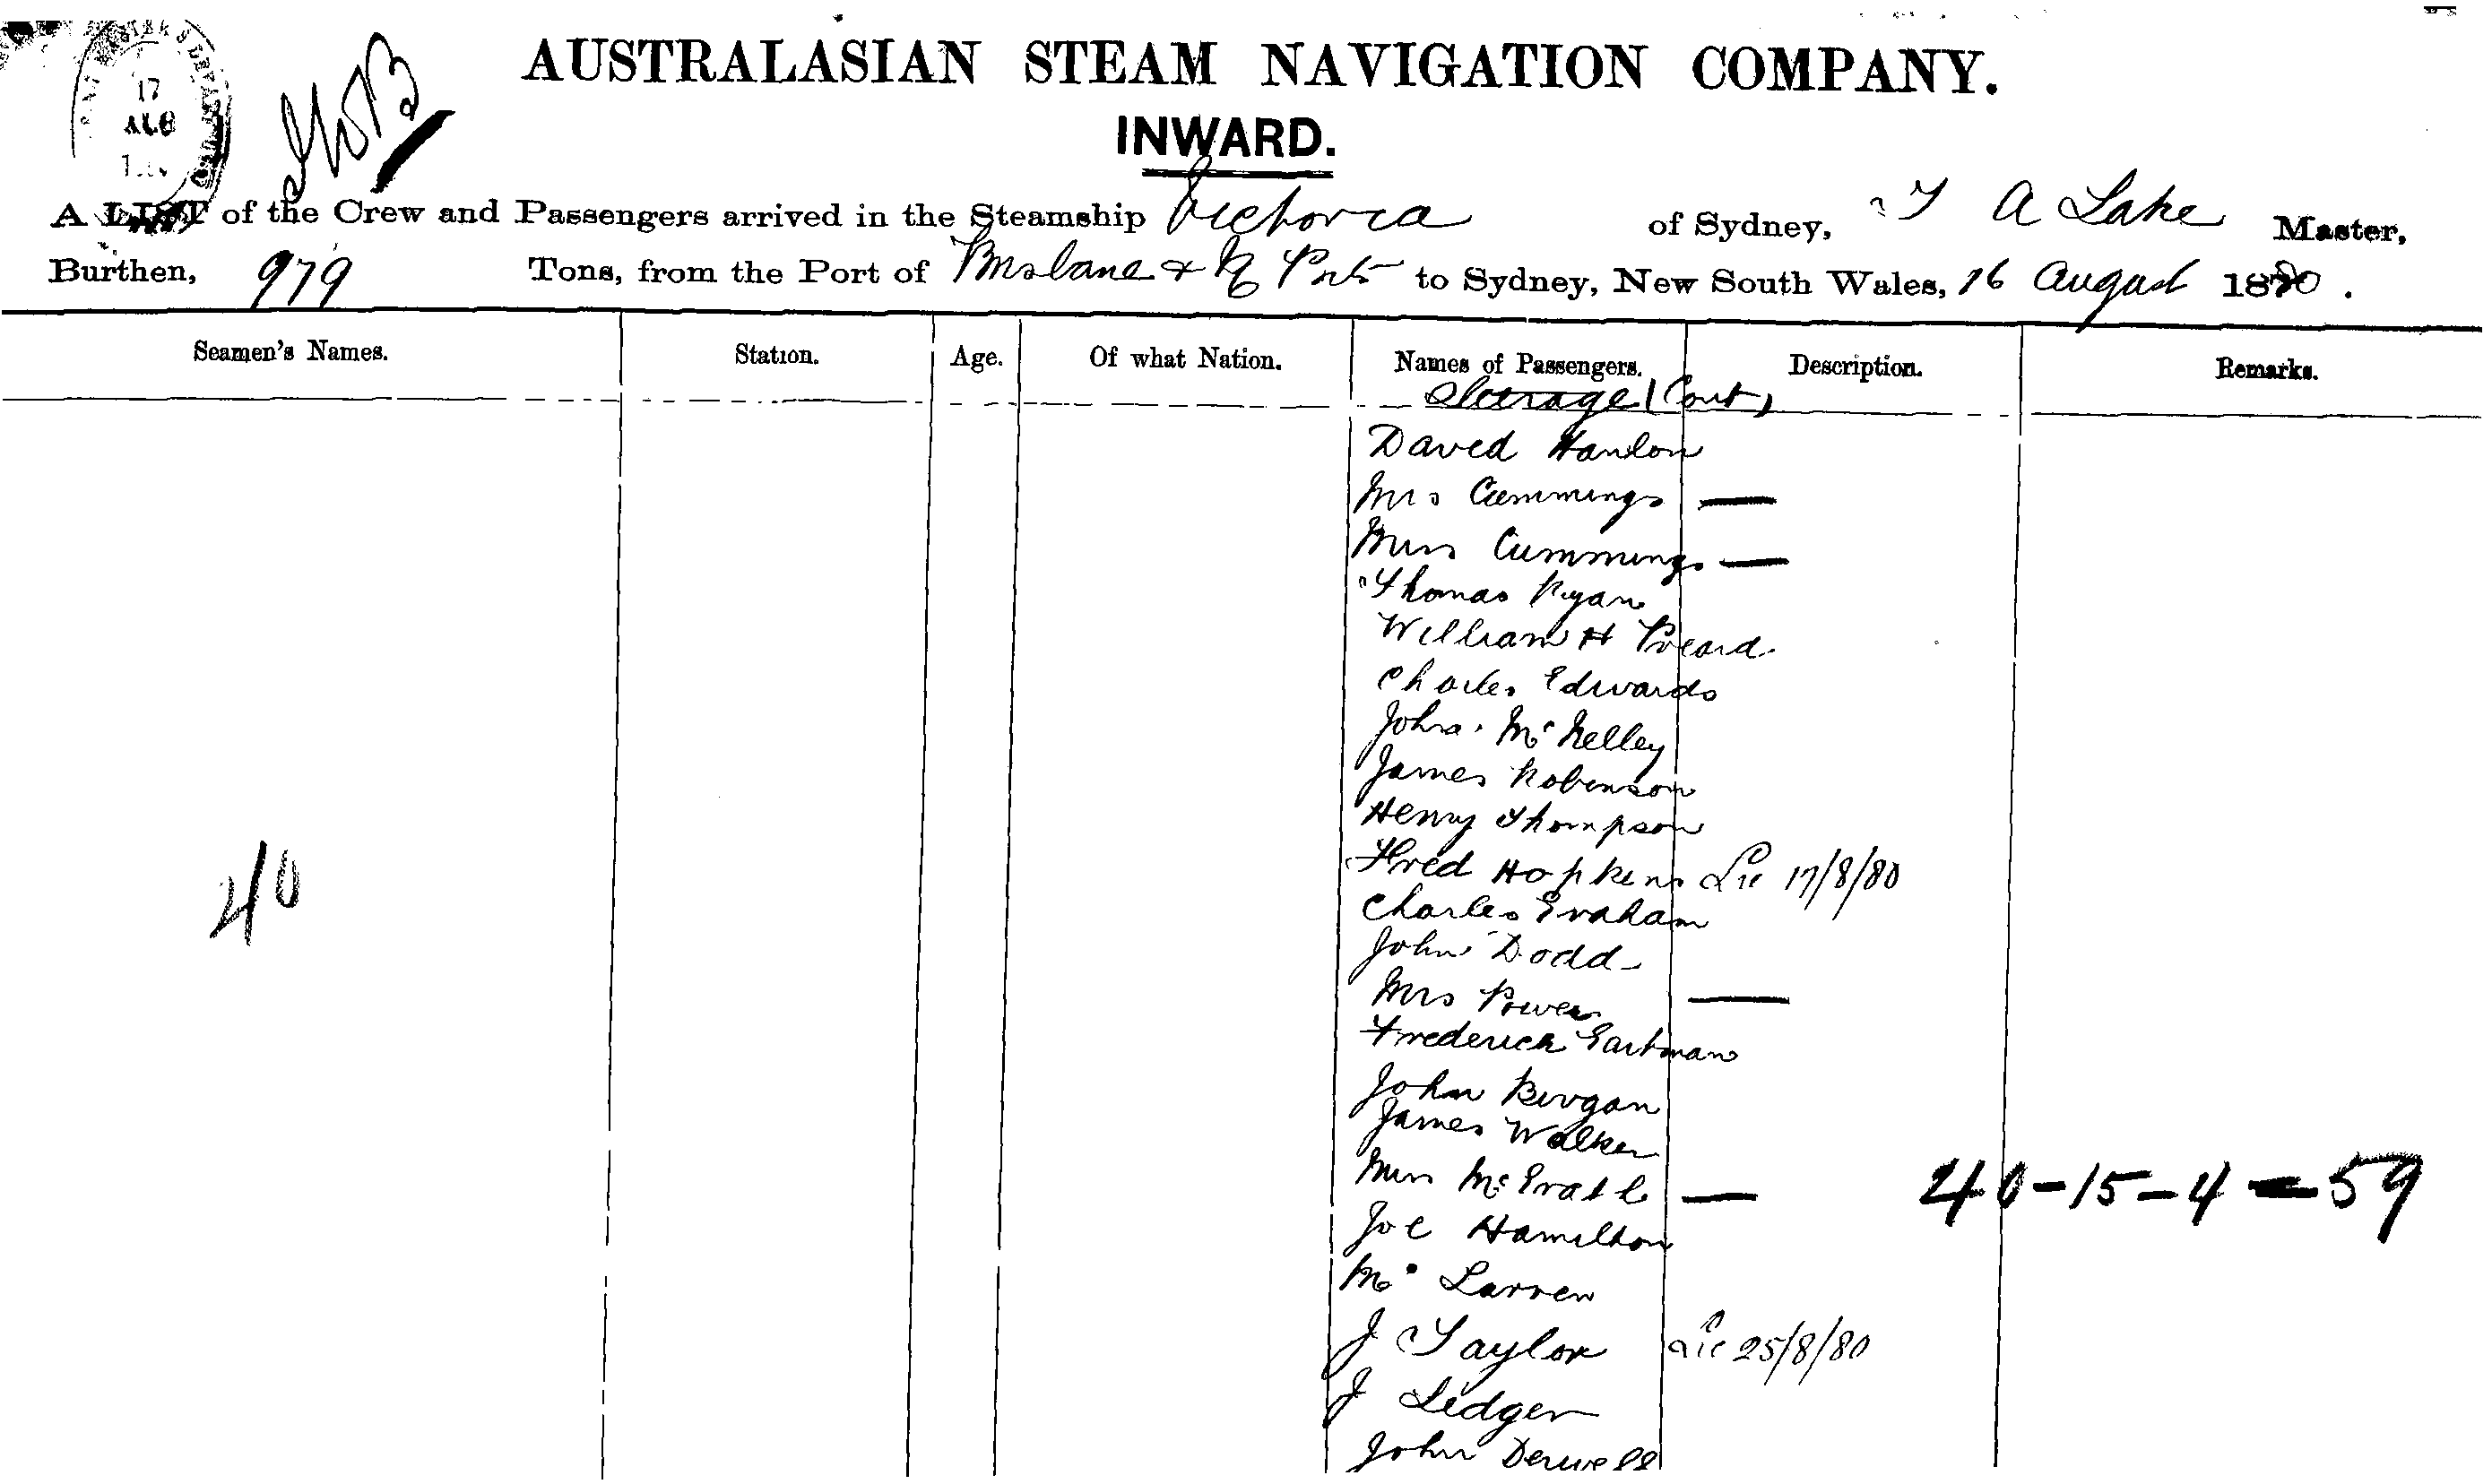 17
AUG
AUSTRALASIAN STEAM NAVIGATION COMPANY.
INWARD.
A LIST of the Crew and Passengers arrived in the Steamship Victoria of Sydney, T A Lake Master,
Burthen, 979 Tons, from the Port of Brisbane & N Ports to Sydney, New South Wales, 16 August 1880.
Seamen's Names. Station. Age. Of what Nation. Names of Passengers. Description. Remarks.
Steerage (Cont)
David Hanlon
Mrs Cummings —
Miss Cummings —
Thomas Ryan
William H
Charles Edwards
John McKelley
James Robinson
Henry Thompson
Fred Hopkins Lic 17/8/80
Charles Graham
John Dodd
Mrs Power —
Frederick Gartman
John Bergan
James Walker
Miss McGrath —
Joe Hamilton
Mc Larren
J Taylor Lic 25/8/80
J Ledger
John
40
40-15-4=59